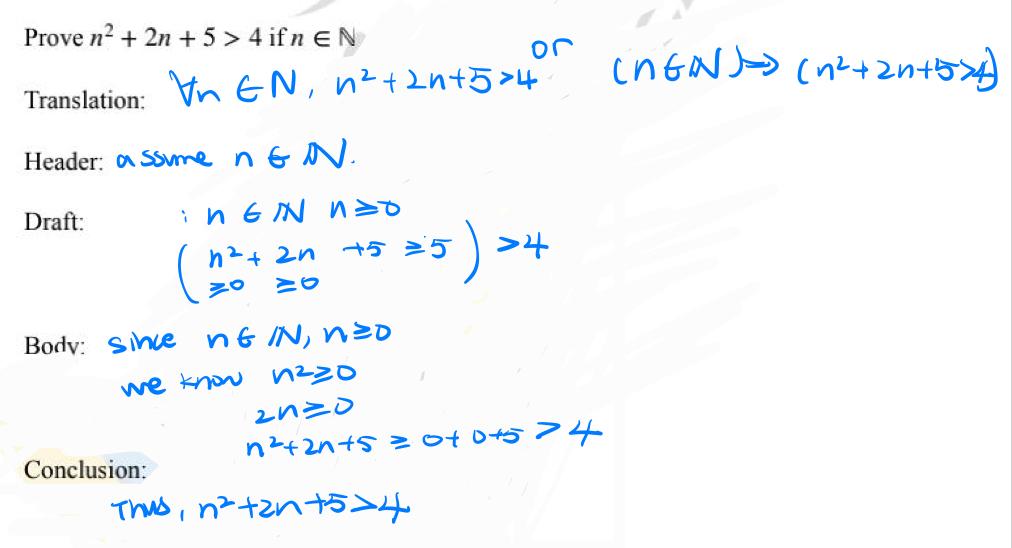 Prove n² + 2n + 5 > 4 if n ∈ ℕ
Translation: ∀n ∈ ℕ, n²+2n+5>4 or (n∈ℕ) → (n²+2n+5>4)
Header: assume n ∈ ℕ.
Draft: : n ∈ ℕ n≥0
( n²+ 2n +5 ≥5 ) >4
≥0 ≥0
Body: since n∈ ℕ, n≥0
we know n²≥0
2n≥0
n²+2n+5 ≥ 0+0+5 >4
Conclusion:
Thus, n²+2n+5>4